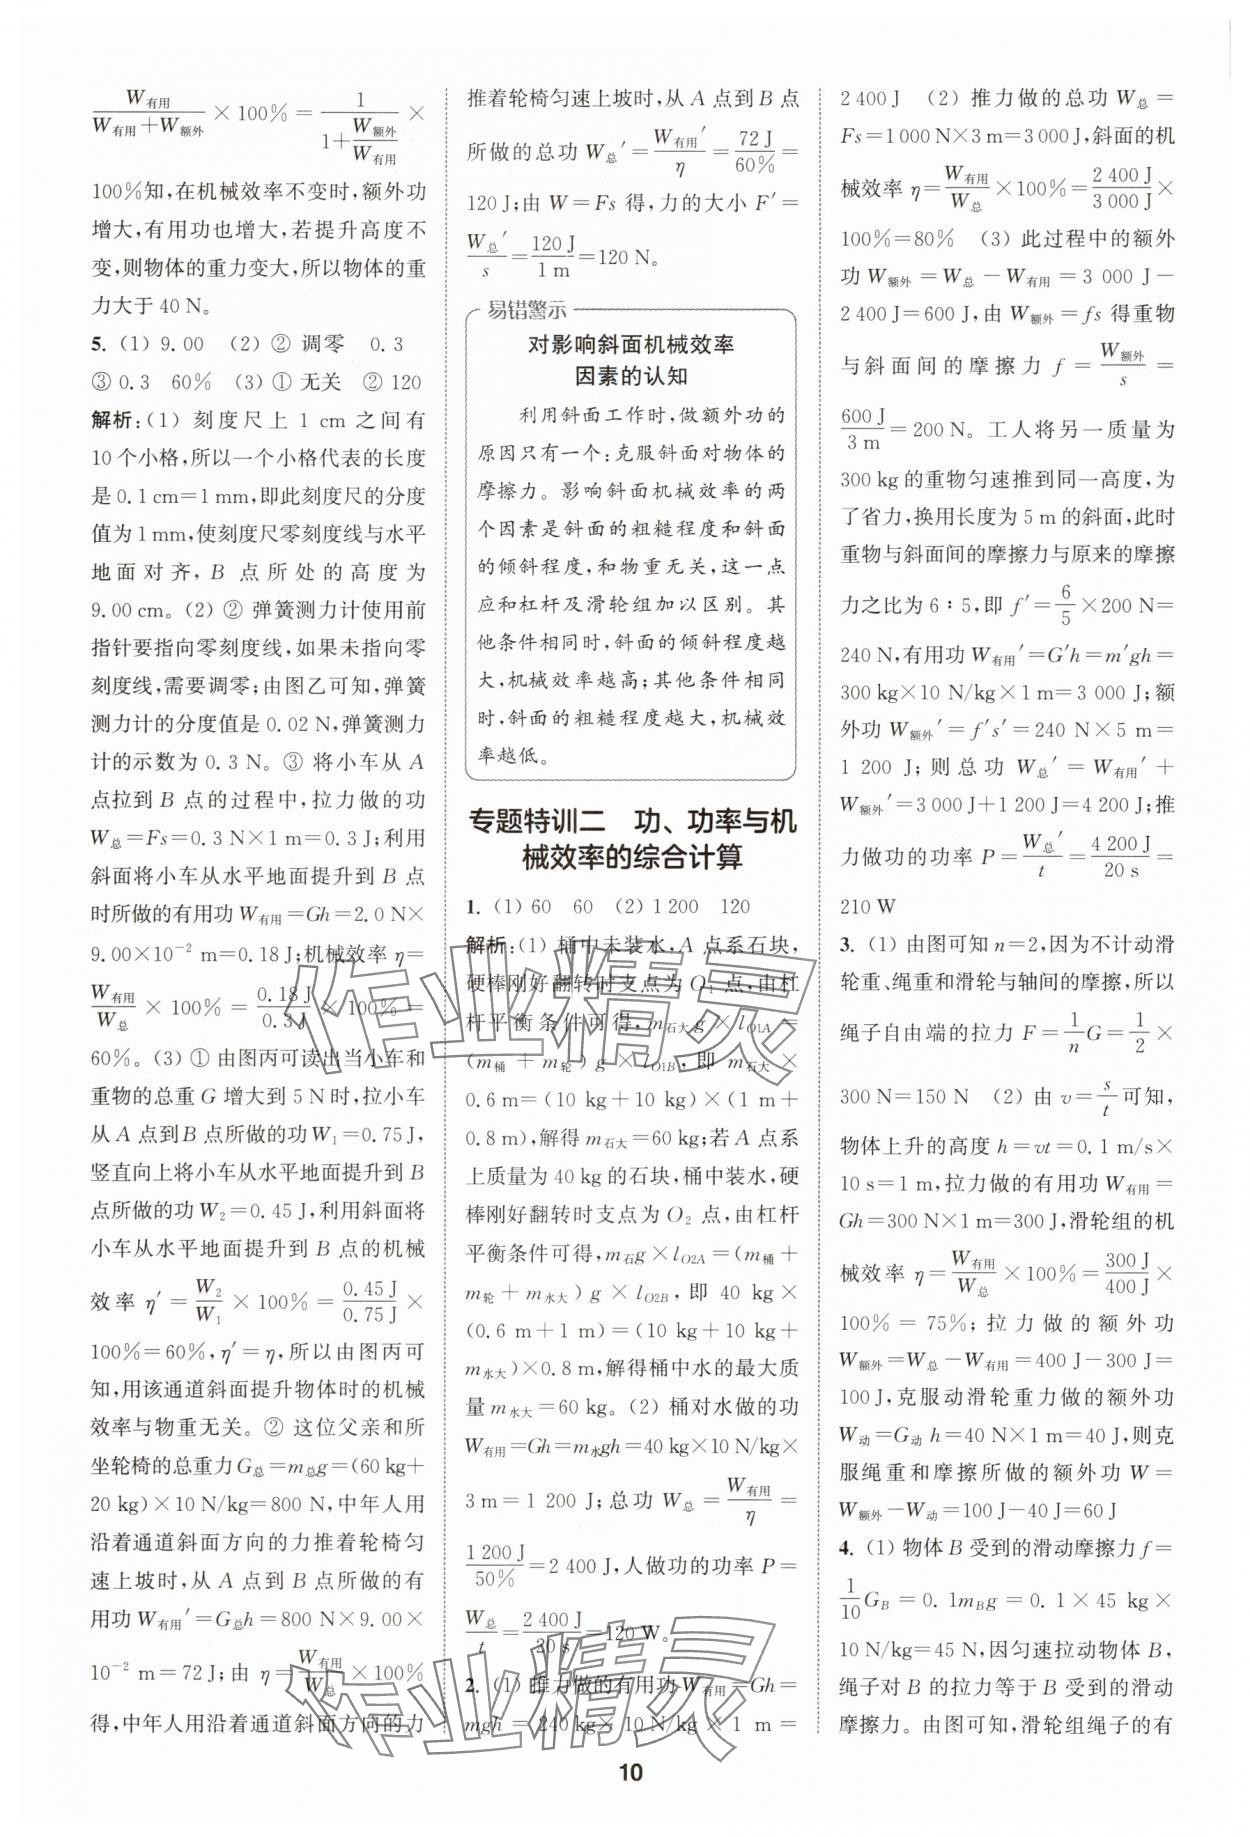 W有用/(W有用+W额外)×100%=1/(1+W额外/W有用)×
100%知,在机械效率不变时,额外功
增大,有用功也增大,若提升高度不
变,则物体的重力变大,所以物体的重
力大于40 N。
5. (1) 9.00 (2) ② 调零 0.3
③ 0.3 60% (3) ① 无关 ② 120
解析:(1) 刻度尺上 1 cm 之间有
10个小格,所以一个小格代表的长度
是0.1 cm=1 mm,即此刻度尺的分度
值为1 mm,使刻度尺零刻度线与水平
地面对齐,B 点所处的高度为
9.00 cm。(2) ② 弹簧测力计使用前
指针要指向零刻度线,如果未指向零
刻度线,需要调零;由图乙可知,弹簧
测力计的分度值是0.02 N,弹簧测力
计的示数为 0.3 N。③ 将小车从 A
点拉到 B 点的过程中,拉力做的功
W总=Fs=0.3 N×1 m=0.3 J;利用
斜面将小车从水平地面提升到 B 点
时所做的有用功W有用=Gh=2.0 N×
9.00×10⁻² m=0.18 J;机械效率 η=
W有用/W总×100%=0.18 J/0.3 J×100%=
60%。(3) ① 由图丙可读出当小车和
重物的总重 G 增大到 5 N时,拉小车
从A 点到B 点所做的功W₁=0.75 J,
竖直向上将小车从水平地面提升到 B
点所做的功 W₂=0.45 J,利用斜面将
小车从水平地面提升到 B 点的机械
效率 η′=W₂/W₁×100%=0.45 J/0.75 J×
100%=60%,η′=η,所以由图丙可
知,用该通道斜面提升物体时的机械
效率与物重无关。② 这位父亲和所
坐轮椅的总重力G总=m总g=(60 kg+
20 kg)×10 N/kg=800 N,中年人用
沿着通道斜面方向的力推着轮椅匀
速上坡时,从 A 点到 B 点所做的有
用功W有用′=G总h=800 N×9.00×
10⁻² m=72 J;由 η=W有用/W总×100%
得,中年人用沿着通道斜面方向的力
推着轮椅匀速上坡时,从 A 点到 B 点
所做的总功 W总′=W有用′/η=72 J/60%=
120 J;由 W=Fs 得,力的大小 F′=
W总′/s=120 J/1 m=120 N。
易错警示
对影响斜面机械效率
因素的认知
利用斜面工作时,做额外功的
原因只有一个:克服斜面对物体的
摩擦力。影响斜面机械效率的两
个因素是斜面的粗糙程度和斜面
的倾斜程度,和物重无关,这一点
应和杠杆及滑轮组加以区别。其
他条件相同时,斜面的倾斜程度越
大,机械效率越高;其他条件相同
时,斜面的粗糙程度越大,机械效
率越低。
专题特训二 功、功率与机
械效率的综合计算
1. (1) 60 60 (2) 1 200 120
解析:(1) 桶中未装水,A 点系石块,
硬棒刚好翻转时支点为 O₁ 点,由杠
杆平衡条件可得,m石大g×lO1A=
(m桶+m轮)g×lO1B,即 m石大×
0.6 m=(10 kg+10 kg)×(1 m+
0.8 m),解得 m石大=60 kg;若 A 点系
上质量为 40 kg 的石块,桶中装水,硬
棒刚好翻转时支点为 O₂ 点,由杠杆
平衡条件可得,m石g×lO2A=(m桶+
m轮+m水大)g×lO2B,即 40 kg×
(0.6 m+1 m)=(10 kg+10 kg+
m水大)×0.8 m,解得桶中水的最大质
量m水大=60 kg。(2) 桶对水做的功
W有用=Gh=m水gh=40 kg×10 N/kg×
3 m=1 200 J;总功 W总=W有用/η=
1 200 J/50%=2 400 J,人做功的功率 P=
W总/t=2 400 J/20 s=120 W。
2. (1) 推力做的有用功W有用=Gh=
mgh=240 kg×10 N/kg×1 m=
2 400 J (2) 推力做的总功 W总=
Fs=1 000 N×3 m=3 000 J,斜面的机
械效率 η=W有用/W总×100%=2 400 J/3 000 J×
100%=80% (3) 此过程中的额外
功 W额外=W总-W有用=3 000 J-
2 400 J=600 J,由 W额外=fs 得重物
与斜面间的摩擦力 f=W额外/s=
600 J/3 m=200 N。工人将另一质量为
300 kg的重物匀速推到同一高度,为
了省力,换用长度为5 m的斜面,此时
重物与斜面间的摩擦力与原来的摩擦
力之比为 6∶5,即 f′=6/5×200 N=
240 N,有用功 W有用′=G′h=m′gh=
300 kg×10 N/kg×1 m=3 000 J;额
外功 W额外′=f′s′=240 N×5 m=
1 200 J;则总功 W总′=W有用′+
W额外′=3 000 J+1 200 J=4 200 J;推
力做功的功率 P=W总′/t=4 200 J/20 s=
210 W
3. (1) 由图可知 n=2,因为不计动滑
轮重、绳重和滑轮与轴间的摩擦,所以
绳子自由端的拉力 F=1/nG=1/2×
300 N=150 N (2) 由 v=s/t可知,
物体上升的高度 h=vt=0.1 m/s×
10 s=1 m,拉力做的有用功 W有用=
Gh=300 N×1 m=300 J,滑轮组的机
械效率 η=W有用/W总×100%=300 J/400 J×
100%=75%;拉力做的额外功
W额外=W总-W有用=400 J-300 J=
100 J,克服动滑轮重力做的额外功
W动=G动h=40 N×1 m=40 J,则克
服绳重和摩擦所做的额外功 W=
W额外-W动=100 J-40 J=60 J
4. (1) 物体 B 受到的滑动摩擦力 f=
1/10GB=0.1mBg=0.1×45 kg×
10 N/kg=45 N,因匀速拉动物体 B,
绳子对 B 的拉力等于 B 受到的滑动
摩擦力。由图可知,滑轮组绳子的有
10
作业精灵
作业精灵